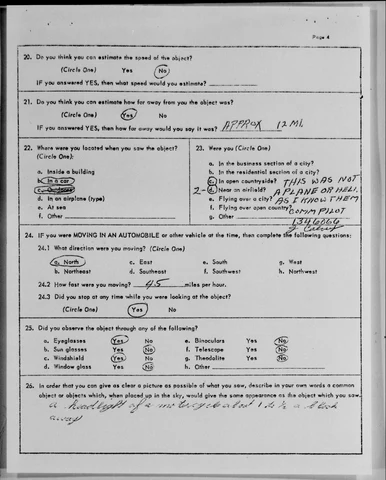 Page 4
20. Do you think you can estimate the speed of the object?
(Circle One) Yes No
IF you answered YES, then what speed would you estimate?
21. Do you think you can estimate how far away from you the object was?
(Circle One) Yes No
IF you answered YES, then how far away would you say it was? APPROX 12 MI.
22. Where were you located when you saw the object?
(Circle One):
a. Inside a building
b. In a car
c. Outdoors
d. In an airplane (type)
e. At sea
f. Other
23. Were you (Circle One)
a. In the business section of a city?
b. In the residential section of a city?
c. In open countryside? THIS WAS NOT
2- d. Near an airfield? A PLANE OR HELI.
e. Flying over a city? AS I KNOW THEM
f. Flying over open country? COMM PILOT
g. Other 1346066
24. IF you were MOVING IN AN AUTOMOBILE or other vehicle at the time, then complete the following questions:
24.1 What direction were you moving? (Circle One)
a. North c. East e. South g. West
b. Northeast d. Southeast f. Southwest h. Northwest
24.2 How fast were you moving? 45 miles per hour.
24.3 Did you stop at any time while you were looking at the object?
(Circle One) Yes No
25. Did you observe the object through any of the following?
a. Eyeglasses Yes No e. Binoculars Yes No
b. Sun glasses Yes No f. Telescope Yes No
c. Windshield Yes No g. Theodolite Yes No
d. Window glass Yes No h. Other
26. In order that you can give as clear a picture as possible of what you saw, describe in your own words a common
object or objects which, when placed up in the sky, would give the same appearance as the object which you saw.
a headlight of a motorcycle about 1 to ½ a block
away